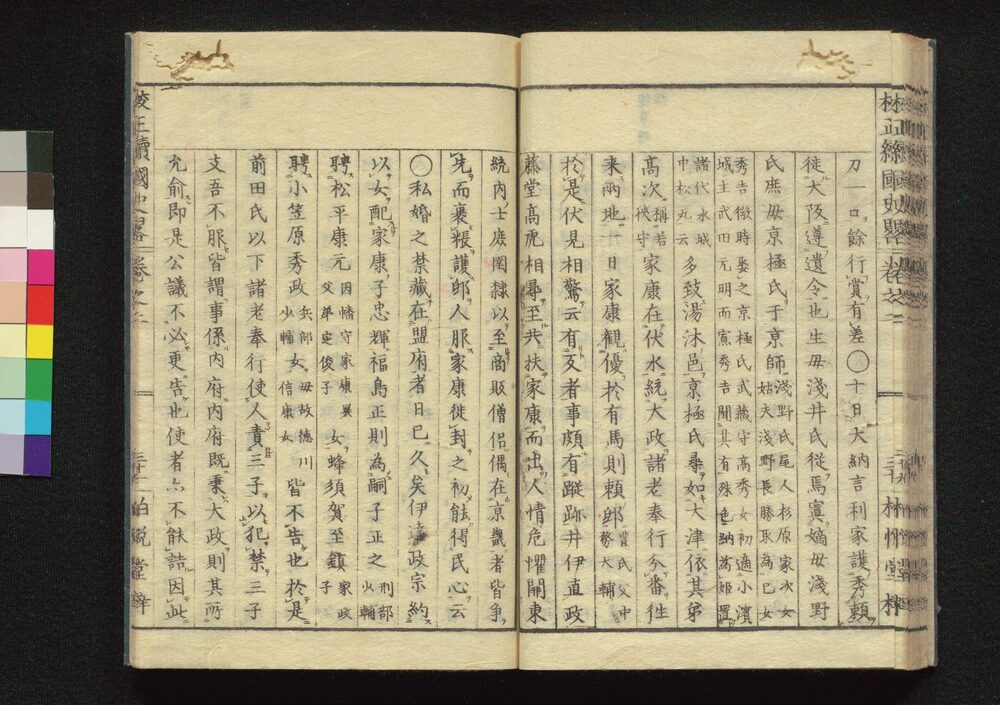 刀一口餘行賞有差〇十日大納言利家護秀賴
徙大阪遵遺令也生毋淺井氏從焉寘嫡毋淺野
氏庶毋京極氏于京師淺野氏尾人杉原家次女姑夫淺野長勝取為己女
秀吉微時娶之京極氏武藏守高秀女初適小濱
城主武田元明而寡秀吉聞其有殊色納為姬置
諸代水城中松丸云多致湯沐邑京極氏尋如大津依其弟
高次稱若狹守家康在伏水統大政諸老奉行今番徃
來兩地一日家康觀優於有馬則賴邸豐氏父中務大輔
於是伏見相驚云有反者事頗有蹤跡井伊直政
藤堂高虎相尋至共扶家康而出人情危懼關東
統內士庶圉隸以至商販僧侶偶在京畿者皆爭
先而裹糧護邸人服家康徙封之初能得民心云
〇私婚之禁藏在盟府者日已久矣伊達政宗約
以女配家康子忠輝福島正則為嗣子正之刑部少輔
聘松平康元因幡守家康異父弟定俊子女蜂須賀至鎮家政子
聘小笠原秀政兵部少輔女毋故德川信康女皆不告也於是
前田氏以下諸老奉行使人責三子以犯禁三子
支吾不服皆謂事係內府內府既秉大政則其所
允俞即是公議不必更告也使者亦不能詰因此